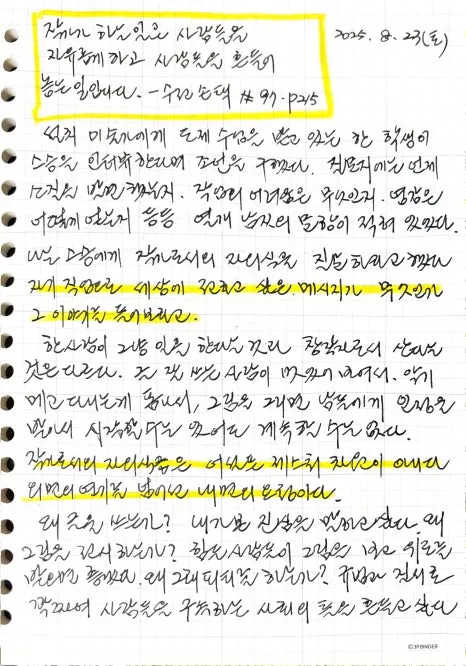 작가가 하는 일은 사람들을
자유롭게 하고 사람들을 흔들어
놓는 일입니다. - 수전 손택 #97. p215
2025. 8. 23(토)
에게 도제 수업을 받고 있는 한 학생이
스승을 인터뷰한다며 조언을 구했다. 질문지에는 언제
했는지. 작업의 어려움은 무엇인지. 영감은
어떻게 얻는지 등등 열개 남짓의 문항이 적혀 있었다.
나는 스승에게 작가로서의 자의식을 질문하라고 했다
자기 작업으로 세상에 전하고 싶은 메시지가 무엇인가
그 이야기를 들어보라고.
한 사람이 그냥 일을 한다는 것과 창작자로서 산다는
것은 다르다. 글 잘 쓰는 사람이 멋있어 보여서. 악기
메고 다니는게 폼나서, 그림을 그리면 남들에게 인정을
받아서 시작할 수는 있어도 계속할 수는 없다.
작가로서의 자의식은 어설픈 제스처 차원이 아니다
외면의 연기를 넘어선 내면의 요청이다.
왜 글을 쓰는가? 내가 본 진실을 말하고 싶다. 왜
그림을 전시하는가? 힘든 사람들이 그림을 보고 위로를
받으면 좋겠다. 왜 그래피티를 하는가? 규범과 질서로
꽉 짜여 사람들을 구속하는 사회의 틀을 흔들고 싶다
3P BINDER